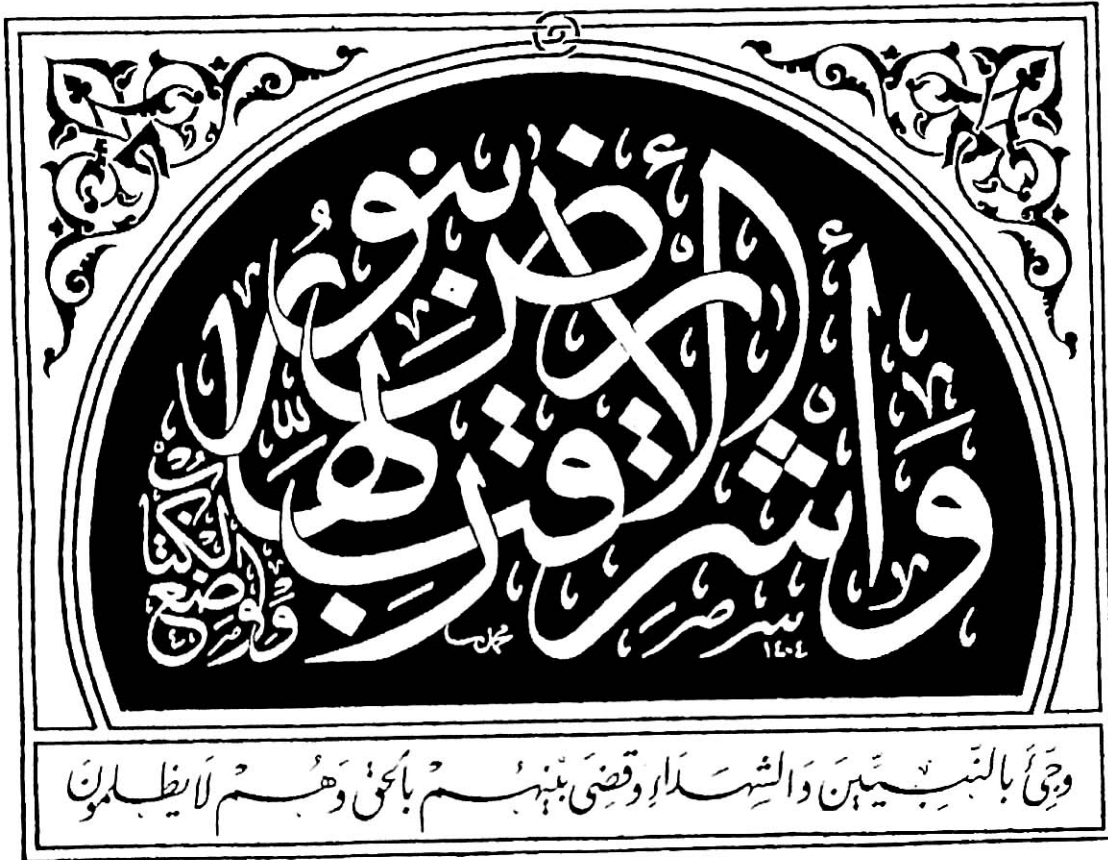 وَأَشْرَقَتِ الْأَرْضُ بِنُورِ رَبِّهَا
وَوُضِعَ الْكِتَابُ
١٤٠٤
وَجِيءَ بِالنَّبِيِّينَ وَالشُّهَدَاءِ وَقُضِيَ بَيْنَهُمْ بِالْحَقِّ وَهُمْ لَا يُظْلَمُونَ